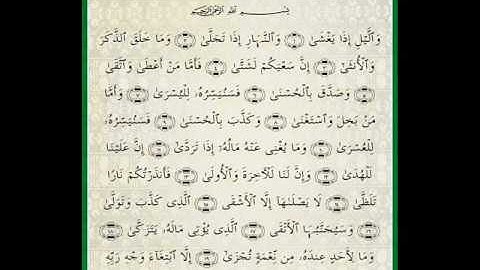 بِسْمِ ٱللَّهِ ٱلرَّحْمَٰنِ ٱلرَّحِيمِ
وَٱلَّيْلِ إِذَا يَغْشَىٰ ١ وَٱلنَّهَارِ إِذَا تَجَلَّىٰ ٢ وَمَا خَلَقَ ٱلذَّكَرَ
وَٱلْأُنثَىٰٓ ٣ إِنَّ سَعْيَكُمْ لَشَتَّىٰ ٤ فَأَمَّا مَنْ أَعْطَىٰ وَٱتَّقَىٰ
٥ وَصَدَّقَ بِٱلْحُسْنَىٰ ٦ فَسَنُيَسِّرُهُۥ لِلْيُسْرَىٰ ٧ وَأَمَّا
مَنۢ بَخِلَ وَٱسْتَغْنَىٰ ٨ وَكَذَّبَ بِٱلْحُسْنَىٰ ٩ فَسَنُيَسِّرُهُۥ
لِلْعُسْرَىٰ ١٠ وَمَا يُغْنِى عَنْهُ مَالُهُۥٓ إِذَا تَرَدَّىٰٓ ١١ إِنَّ عَلَيْنَا
لَلْهُدَىٰ ١٢ وَإِنَّ لَنَا لَلْءَاخِرَةَ وَٱلْأُولَىٰ ١٣ فَأَنذَرْتُكُمْ نَارًا
تَلَظَّىٰ ١٤ لَا يَصْلَىٰهَآ إِلَّا ٱلْأَشْقَى ١٥ ٱلَّذِى كَذَّبَ وَتَوَلَّىٰ
١٦ وَسَيُجَنَّبُهَا ٱلْأَتْقَى ١٧ ٱلَّذِى يُؤْتِى مَالَهُۥ يَتَزَكَّىٰ ١٨
وَمَا لِأَحَدٍ عِندَهُۥ مِن نِّعْمَةٍ تُجْزَىٰٓ ١٩ إِلَّا ٱبْتِغَآءَ وَجْهِ رَبِّهِ